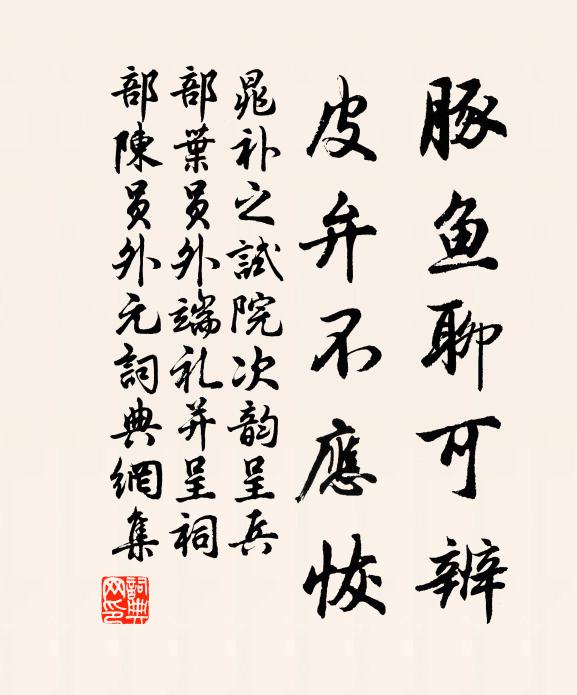 豚鱼聊可辨
皮弁不應恔
晁补之試院次韵呈兵
部葉員外端礼并呈祠
部陳員外元詞典網集
詞典网印